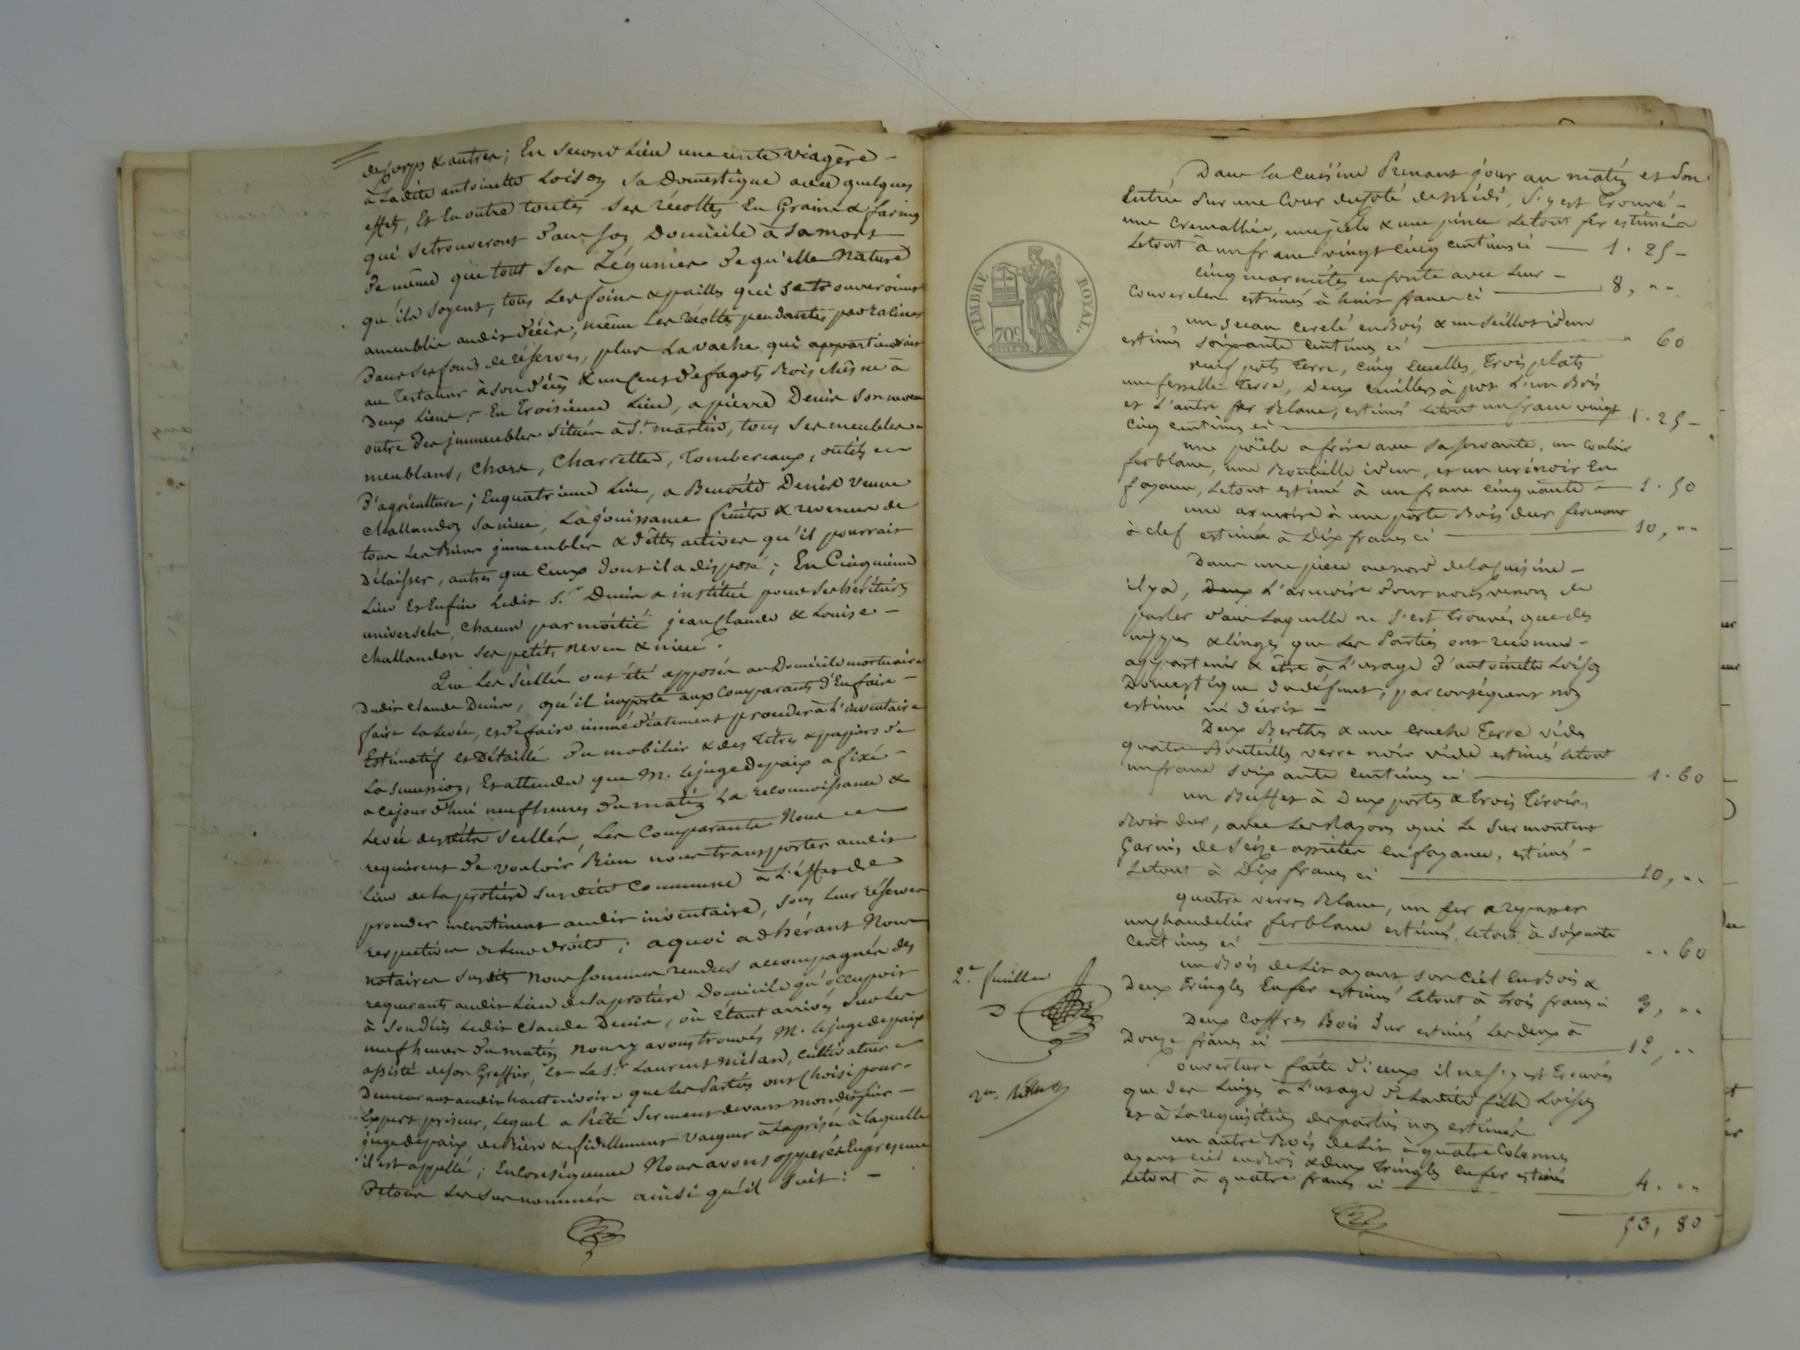 de corps & autres; En second Lieu une rente viagère -
à Ladite antoinette Loison sa Domestique avec quelques
effets, Et En outre toutes ses recoltes En Graines & farines
qui se trouveront dans son Domicile à sa mort
de même que tout ses Légumes de qu'elle Nature
qu'ils soyent, tous les foins & pailles qui se trouveroient
amenblée audit décès, même les recoltes pendantes par racines
Dans ses fonds de réserves, plus La vache qui appartiendrait
au Testateur à son décès & un Cent de fagots Bois chêsne à
Deux Liens; En Troisième Lieu, a pierre Denis son neveu
outre des jmmeubles situés à St. martin, tous ses meubles -
meublans, chars, charrettes, Tombereaux, outils
d'agriculture; En quatrième Lieu, a Benoite Denis veuve
challandon sa niece, La jouissance fruits & revenus de
tous les Biens jmmeubles & dettes actives qu'il pourrait
Délaisser, autres que Ceux dont il a disposé; En Cinquième
Lieu Et Enfin Ledit Sr. Denis a institué pour ses héritiers
universels, chacun par moitié jean Claude & Louise -
challandon ses petits neveu & niece.
Que Les scellés ont été apposés au Domicile mortuaire
Dudit Claude Denis, qu'il importe aux Comparants d'En faire -
faire La Levée, et de faire immédiatement procéder à L'inventaire
Estimatif et Détaillé du mobilier & des titres & papiers de
La succession, Et attendu que M. Le juge de paix a fixé -
a ce jourd'hui neuf heures du matin La reconnoissance &
Levée des scellés, Les Comparants Nous
requièrent de vouloir Bien nous transporter audit
Lieu de La protière susdite Commune à L'effet de
procéder incontinent audit inventaire, sous Leur réserves
respectives de Leurs droits; a quoi adhérant Nous
notaires susdits Nous sommes rendus accompagnés des
requerants audit Lieu de La protière Domicile qu'occupoit
à son décès Ledit Claude Denis, où Etant arrivés sur Les
neuf heures du matin Nous y avons trouvés M. Le juge de paix
assisté de son Greffier, et Le Sr. Laurent milan, cultivateur
Demeurant audit que Les Parties ont Choisi pour -
Expert priseur, Lequel a Prêté Serment devant mondit sieur -
juge de paix de Bien & fidellement vaquer à La prisée à laquelle
il est appellé; En Conséquence Nous avons opperé En presence
De tous Les sus nommés ainsi qu'il suit: -
TIMBRE ROYAL.
70c
Dans La Cuisine Prenant jour au matin et son
Entrée sur une Cour du Coté de midi, S'y est trouvé -
une Cremalliée, une & une pince Le tout fer estimés
Le tout à un franc vingt cinq centimes ci — 1. 25 -
Cinq marmites en fonte avec Leur -
Couvercles estimés à huit francs ci — 8, " "
un seau cerclé en Bois & un seillot idem
estimés soixante centimes ci — " 60
neuf pots terre, Cinq Ecuelles, trois plats
une fesselle terre, Deux cuillers à pot L'un Bois
et L'autre fer Blanc, estimés Le tout un franc vingt
Cinq centimes ci — 1. 25 -
une poële a frire avec sa servante, un Couloir
fer blanc, une Bouteille idem, et un En
fayance, Le tout estimé à un franc cinquante — 1. 50
une armoire à une porte Bois dur fermant
à clef estimée à Dix francs ci — 10, " "
Dans une pièce au nord de La Cuisine -
il y a, Deux L'armoire dont nous venons de
parler dans Laquelle ne s'est trouvés que des
nippes & linges que Les Parties ont reconnu -
appartenir & être à L'usage d'antoinette Loison
Domestique du défunt, par conséquent non
estimé ni décrit -
Deux Berthes & une cruche Terre vides
quatre Bouteilles verre noir vide estimés Le tout
un franc soixante centimes ci — 1. 60
un Buffet à Deux portes & trois Tiroirs
Bois dur, avec Les Rayons qui Le surmontent
Garnis de Seize assiettes en fayance, estimés -
Le tout à Dix francs ci — 10, " "
quatre verres Blanc, un fer a repasser
un chandelier fer blanc estimés Le tout à soixante
Centimes ci — " " 60
un Bois de Lit ayant son Ciel En Bois &
Deux tringles En fer estimés Le tout à trois francs ci 3, " "
Deux Coffres Bois dur estimés Les deux à
Douze francs ci — 12, " "
ouverture faite d'iceux il ne s'y est trouvés
que des Linges à L'usage de Ladite fille Loison
et à La requisition des parties non estimés
un autre Bois de Lit à quatre Colonnes
ayant ciel en Bois & deux tringles en fer estimés
Le tout à quatre francs ci — 4. " "
53, 80
2e. feuillet